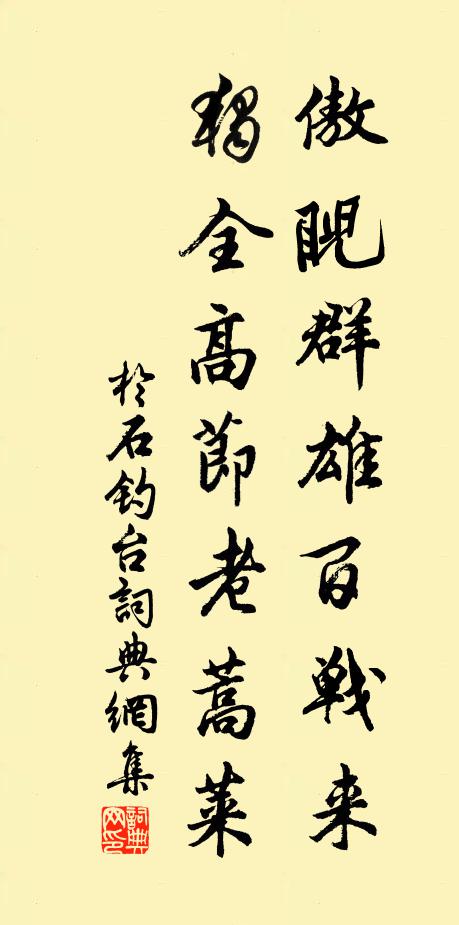 傲睨群雄百戦来
獨全高節老蒿萊
於石钓台詞典網集
詞典网印